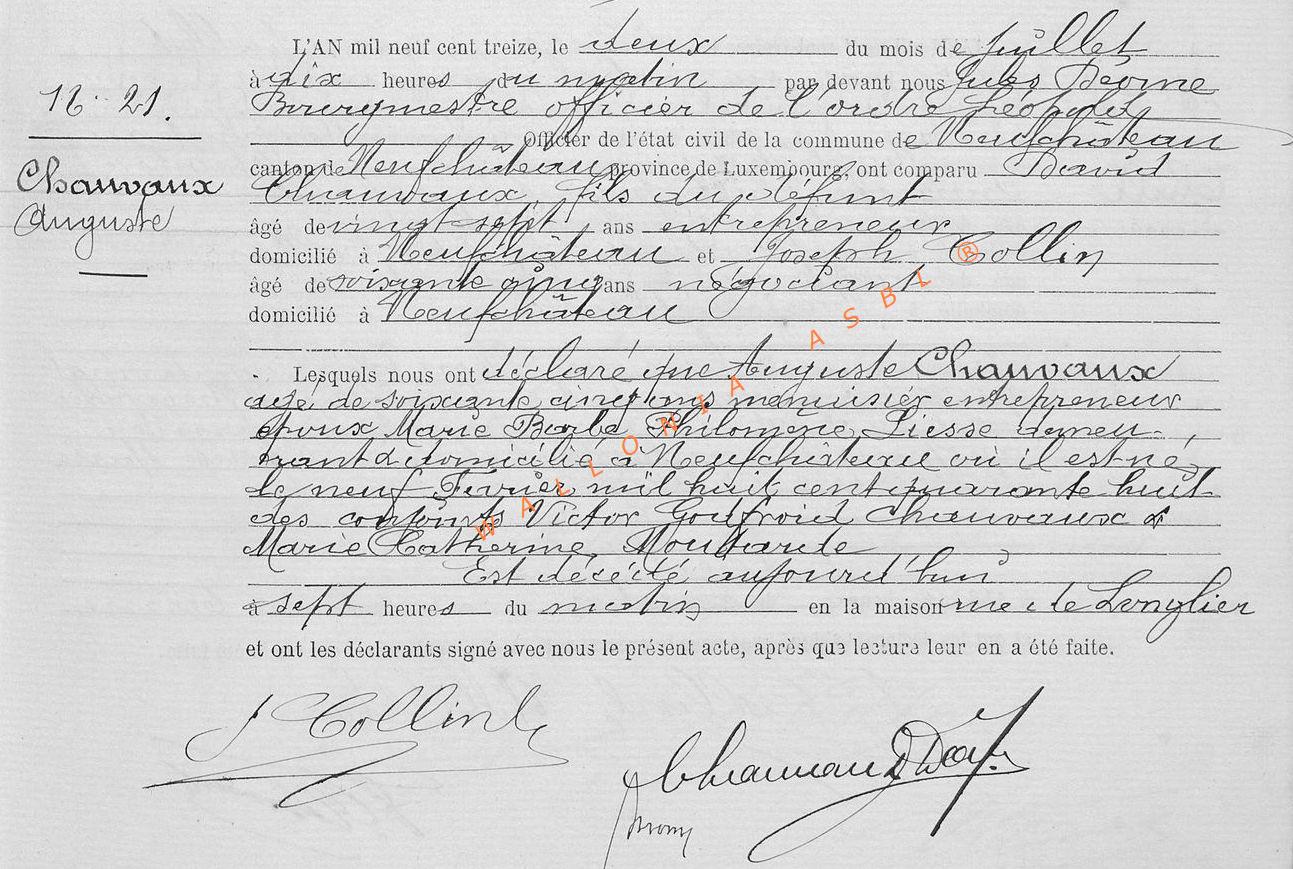 L'AN mil neuf cent treize, le deux du mois de juillet
à dix heures du matin par devant nous Jules
Bourgmestre officier de l'ordre Léopold
Officier de l'état civil de la commune de Neufchâteau
canton de Neufchâteau province de Luxembourg, ont comparu David
Chauvaux fils du défunt
âgé de vingt sept ans entrepreneur
domicilié à Neufchâteau et Joseph Collin
âgé de soixante cinq ans négociant
domicilié à Neufchâteau
Lesquels nous ont déclaré que Auguste Chauvaux
agé de soixante cinq ans menuisier entrepreneur
époux Marie Barbe Philomène Liesse demeu-
rant domicilié à Neufchâteau où il est né
le neuf Février mil huit cent quarante huit
des conjoints Victor Godfroid Chauvaux &
Marie Catherine Moutarde
Est décédé aujourd'hui
à sept heures du matin en la maison rue de Longlier
et ont les déclarants signé avec nous le présent acte, après que lecture leur en a été faite.
J Collin
Chauvaux
21.
Chauvaux
Auguste
WALLONIA ASBL ®